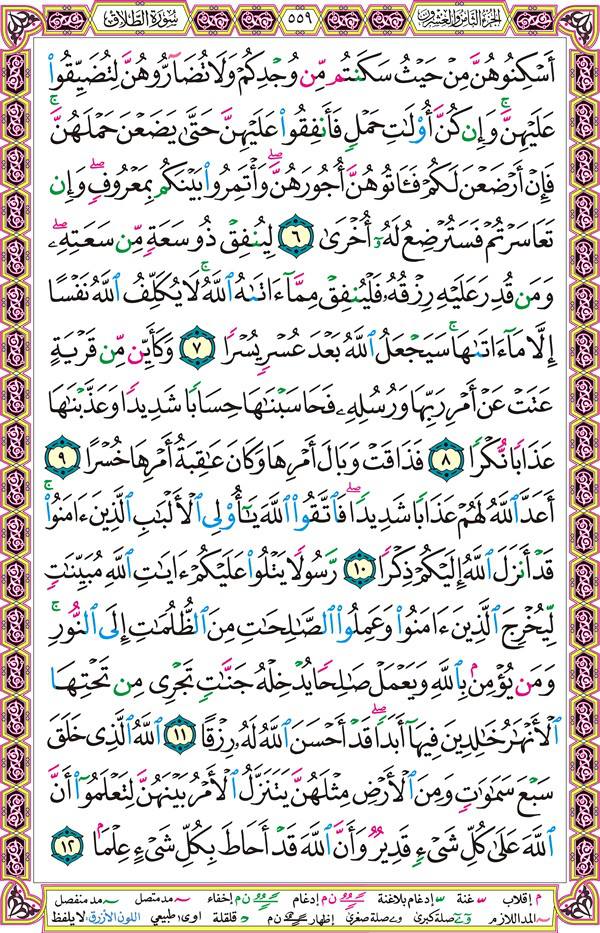 سُورَةُ الطَّلَاقِ
٥٥٩
الجُزْءُ الثَّامِنُ وَالعِشْرُونَ
أَسْكِنُوهُنَّ مِنْ حَيْثُ سَكَنتُم مِّن وُجْدِكُمْ وَلَا تُضَآرُّوهُنَّ لِتُضَيِّقُوا۟
عَلَيْهِنَّ ۚ وَإِن كُنَّ أُو۟لَٰتِ حَمْلٍ فَأَنفِقُوا۟ عَلَيْهِنَّ حَتَّىٰ يَضَعْنَ حَمْلَهُنَّ ۚ
فَإِنْ أَرْضَعْنَ لَكُمْ فَـَٔاتُوهُنَّ أُجُورَهُنَّ ۖ وَأْتَمِرُوا۟ بَيْنَكُم بِمَعْرُوفٍ ۖ وَإِن
تَعَاسَرْتُمْ فَسَتُرْضِعُ لَهُۥٓ أُخْرَىٰ ٦ لِيُنفِقْ ذُو سَعَةٍ مِّن سَعَتِهِۦ ۖ
وَمَن قُدِرَ عَلَيْهِ رِزْقُهُۥ فَلْيُنفِقْ مِمَّآ ءَاتَىٰهُ ٱللَّهُ ۚ لَا يُكَلِّفُ ٱللَّهُ نَفْسًا
إِلَّا مَآ ءَاتَىٰهَا ۚ سَيَجْعَلُ ٱللَّهُ بَعْدَ عُسْرٍ يُسْرًا ٧ وَكَأَيِّن مِّن قَرْيَةٍ
عَتَتْ عَنْ أَمْرِ رَبِّهَا وَرُسُلِهِۦ فَحَاسَبْنَٰهَا حِسَابًا شَدِيدًا وَعَذَّبْنَٰهَا
عَذَابًا نُّكْرًا ٨ فَذَاقَتْ وَبَالَ أَمْرِهَا وَكَانَ عَٰقِبَةُ أَمْرِهَا خُسْرًا ٩
أَعَدَّ ٱللَّهُ لَهُمْ عَذَابًا شَدِيدًا ۖ فَٱتَّقُوا۟ ٱللَّهَ يَٰٓأُو۟لِى ٱلْأَلْبَٰبِ ٱلَّذِينَ ءَامَنُوا۟ ۚ
قَدْ أَنزَلَ ٱللَّهُ إِلَيْكُمْ ذِكْرًا ١٠ رَّسُولًا يَتْلُوا۟ عَلَيْكُمْ ءَايَٰتِ ٱللَّهِ مُبَيِّنَٰتٍ
لِّيُخْرِجَ ٱلَّذِينَ ءَامَنُوا۟ وَعَمِلُوا۟ ٱلصَّٰلِحَٰتِ مِنَ ٱلظُّلُمَٰتِ إِلَى ٱلنُّورِ ۚ
وَمَن يُؤْمِنۢ بِٱللَّهِ وَيَعْمَلْ صَٰلِحًا يُدْخِلْهُ جَنَّٰتٍ تَجْرِى مِن تَحْتِهَا
ٱلْأَنْهَٰرُ خَٰلِدِينَ فِيهَآ أَبَدًا ۖ قَدْ أَحْسَنَ ٱللَّهُ لَهُۥ رِزْقًا ١١ ٱللَّهُ ٱلَّذِى خَلَقَ
سَبْعَ سَمَٰوَٰتٍ وَمِنَ ٱلْأَرْضِ مِثْلَهُنَّ يَتَنَزَّلُ ٱلْأَمْرُ بَيْنَهُنَّ لِتَعْلَمُوٓا۟ أَنَّ
ٱللَّهَ عَلَىٰ كُلِّ شَىْءٍ قَدِيرٌ وَأَنَّ ٱللَّهَ قَدْ أَحَاطَ بِكُلِّ شَىْءٍ عِلْمًۢا ١٢
م إقلاب غنة إدغام بلاغنة ن م إدغام إخفاء مد متصل مد منفصل
المد اللازم صلة كبرى صلة صغرى إظهار ن م قلقلة اوى: طبيعي اللون الأزرق: لا يلفظ